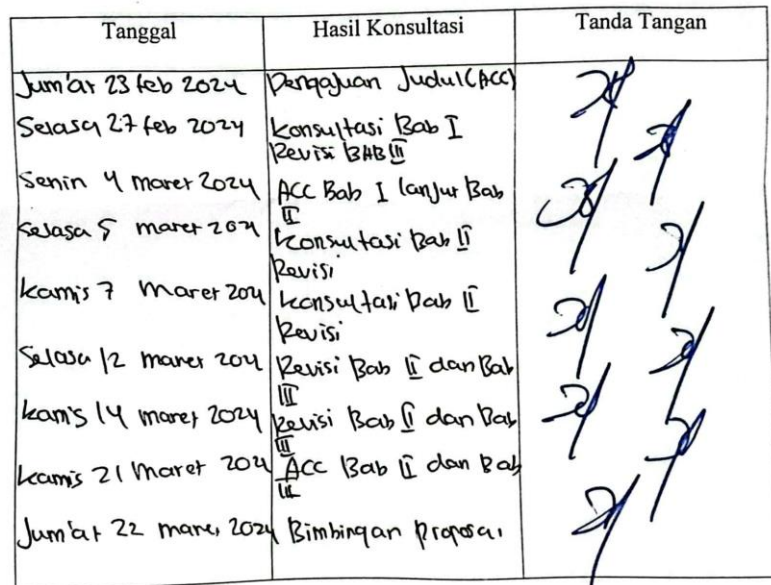 Tanggal Hasil Konsultasi Tanda Tangan
Jum'at 23 feb 2024 Pengajuan Judul (ACC)
Selasa 27 feb 2024 Konsultasi Bab I
Revisi BAB II
Senin 4 maret 2024 ACC Bab I lanjut Bab
II
Selasa 5 maret 2024 Konsultasi Bab II
Revisi
Kamis 7 Maret 2024 Konsultasi Bab II
Revisi
Selasa 12 maret 2024 Revisi Bab II dan Bab
III
Kamis 14 maret 2024 Revisi Bab II dan Bab
III
Kamis 21 Maret 2024 ACC Bab II dan Bab
III
Jum'at 22 maret 2024 Bimbingan Proposal